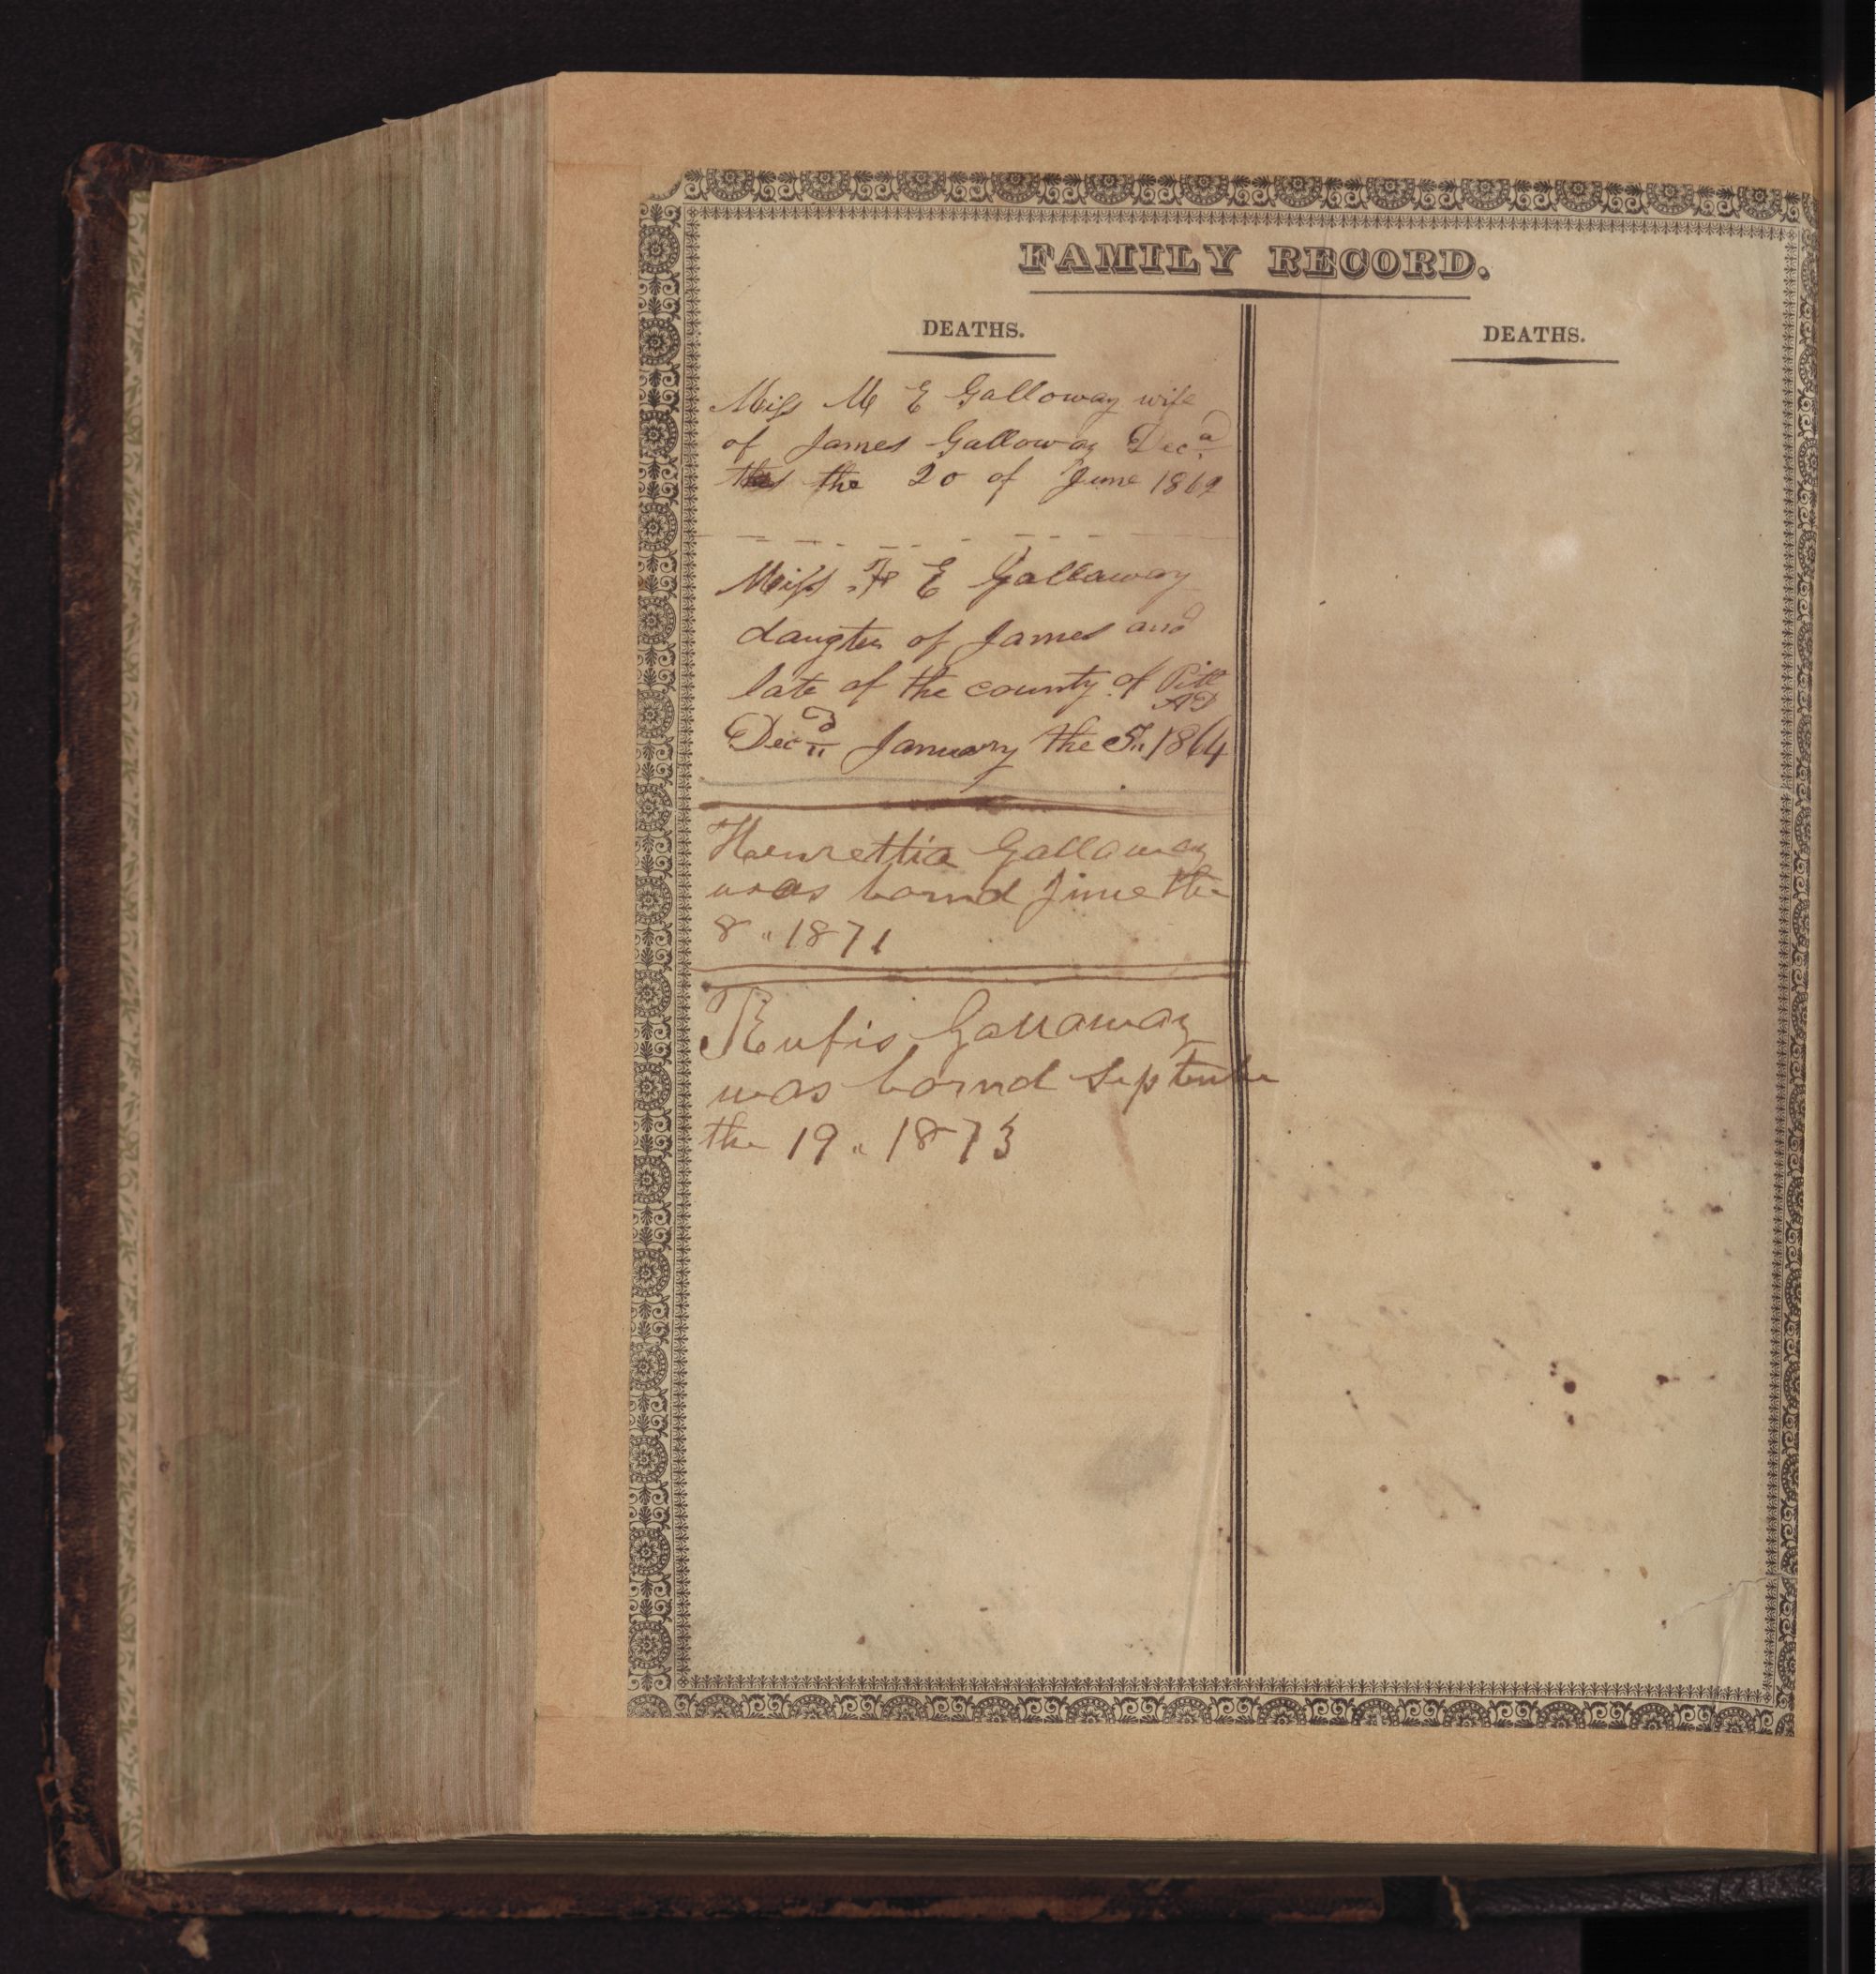 FAMILY RECORD.
DEATHS.
Miss M E Galloway wife
of James Galloway Decd
the 20 of June 1862
Miss F E Gallaway
daugter of James and
late of the county of Pitt
AD
Decd January the 5" 1864
Henrettia Gallaway
was bornd June the
8 " 1871
Rufis Gallaway
was bornd Septembe
the 19 " 1873
DEATHS.